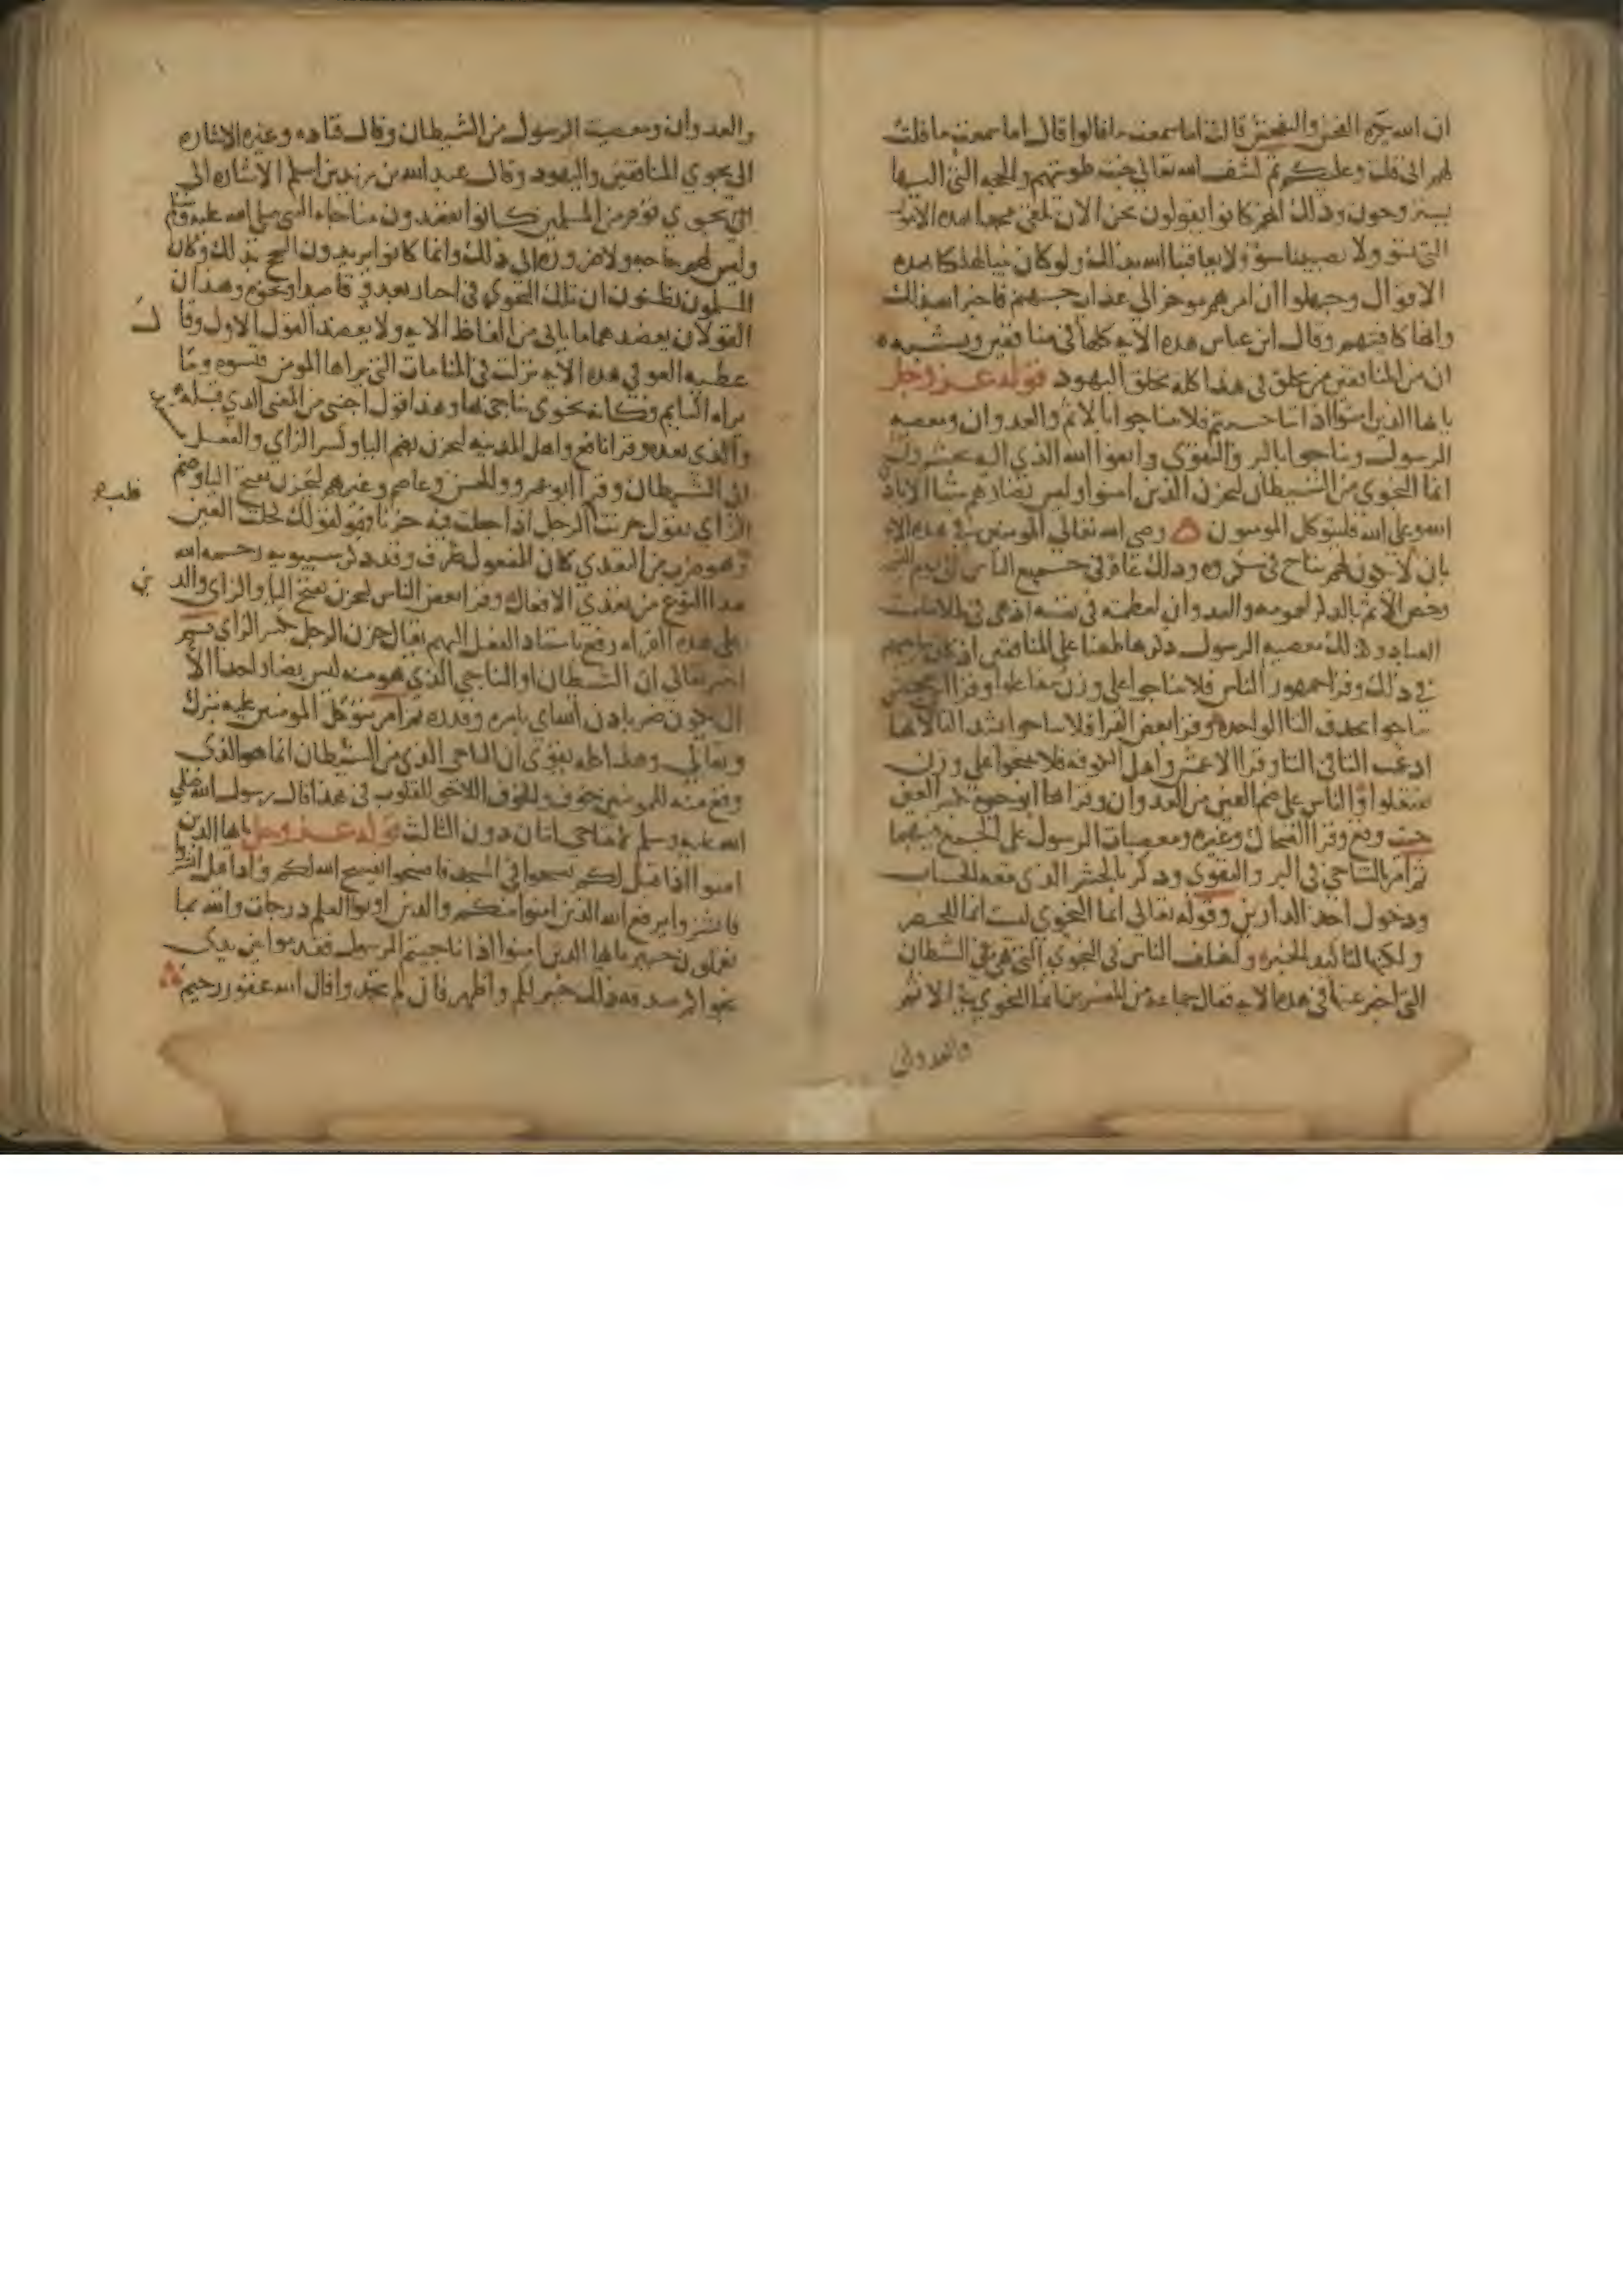 ان الله يكره الفحش والتفحش قالت اما سمعت ما قالوا قال اما سمعت ما قلت
لهم اني قلت وعليكم ثم كشف الله تعالى خبث طويتهم والحجة التي اليها
يستروحون وذلك انهم كانوا يقولون نحن الان نلقى محمدا بهذه الامور
التي تسوه ولا يصيبنا سوء ولا يعاقبنا الله بذلك ولو كان نبيا لهلكنا بهذه
الاقوال وجهلوا ان امرهم موخر الى عذاب جهنم فاخبر الله بذلك
وانها كافيتهم وقال ابن عباس هذه الايه كلها في منافقين ويشبه
ان من المنافقين من تخلق في هذا كله بخلق اليهود قوله عز وجل
يايها الذين امنوا اذا تناجيتم فلا تتناجوا بالاثم والعدوان ومعصيه
الرسول وتناجوا بالبر والتقوى واتقوا الله الذي اليه تحشرون
انما النجوى من الشيطان ليحزن الذين امنوا وليس بضارهم شيا الا باذن
الله وعلى الله فليتوكل المومنون وصى الله تعالى المومنين في هذه الايه
بان لا يكون لهم تناج في مكروه وذلك عام في جميع الناس الى يوم القيمه
وخص الاثم بالذكر لعمومه والعدوان لعظمته في نفسه اذ هي في ظلامات
العباد وكذلك معصيه الرسول ذكرها طعنا على المنافقين اذ كان تناجيهم
في ذلك وقرا جمهور الناس فلا تتناجوا على وزن تتفاعلوا وقرا ابن محيصن
تناجوا بحذف التا الواحده وقرا بعض القرا فلا تناجوا بشد التا لانها
ادغمت التا في التا وقرا الاعمش واهل الكوفه فلا تنتجوا على وزن
تفتعلوا والناس على ضم العين من العدوان وقراها ابو حيوة بكسر العين
حيث وقع وقرا الضحاك وغيره ومعصيات الرسول على الجمع فيهما
ثم امر بالتناجي في البر والتقوى وذكر بالحشر الذي معه الحساب
ودخول احد الدارين وقوله تعالى انما النجوى ليست انما للحصر
ولكنها لتاكيد الخبر واختلف الناس في النجوى التي هي من الشيطان
التي اخبر عنها في هذه الايه فقال جماعة من المفسرين انما النجوى في الاثم
والعدوان
والعدوان ومعصية الرسول من الشيطان وقال قتاده وغيره الاشاره
الى نجوى المنافقين واليهود وقال عبد الله بن زيد بن اسلم الاشاره الى
نجوى قوم من المسلمين كانوا يقصدون مناجاه النبي صلى الله عليه وسلم
وليس لهم حاجه ولا ضروره الى ذلك وانما كانوا يريدون التبجح بذلك وكان
المسلمون يظنون ان تلك النجوى في اخبار بعدو قاصد او نحوه وهذان
القولان يعضدهما ما ياتي من الفاظ الايه ولا يعضد القول الاول وقال
عطيه العوفي هذه الايه نزلت في المنامات التي يراها المومن فتسوه وما
يراه النايم وكانه نجوى يناجى بها وهذا قول اجنبي من المعنى الذي قبله
والذي بعده وقرا نافع واهل المدينه ليحزن بضم اليا وكسر الزاي والفعل
الى الشيطان وقرا ابو عمرو والحسن وعاصم وغيرهم ليحزن بفتح اليا وضم
الزاي تقول حزنت الرجل اذا جعلت فيه حزنا فهو كقولك كحلت العين
وهو ضرب من التعدي كان المفعول ظرف وقد ذكر سيبويه رحمه الله
هذا النوع من تعدي الافعال وقرا بعض الناس ليحزن بفتح اليا والزاي والذين
على هذه القراه رفع باسناد الفعل اليهم يقال حزن الرجل بكسر الزاي ثم
اخبر تعالى ان الشيطان او التناجي الذي هو منه ليس بضار احدا الا
ان يكون ضر باذن الله اي بامره وقدره ثم امر بتوكل المومنين عليه تبارك
وتعالى وهذا كله يقوي ان التناجي الذي من الشيطان انما هو الذي
وقع منه للمومنين خوف وللخوف اللاحق للقلوب في هذا قال رسول الله صلى
الله عليه وسلم لا يتناجى اثنان دون الثالث قوله عز وجل يايها الذين
امنوا اذا قيل لكم تفسحوا في المجلس فافسحوا يفسح الله لكم واذا قيل انشزوا
فانشزوا يرفع الله الذين امنوا منكم والذين اوتوا العلم درجات والله بما
تعملون خبير يايها الذين امنوا اذا ناجيتم الرسول فقدموا بين يدي
نجواكم صدقه ذلك خير لكم واطهر فان لم تجدوا فان الله غفور رحيم